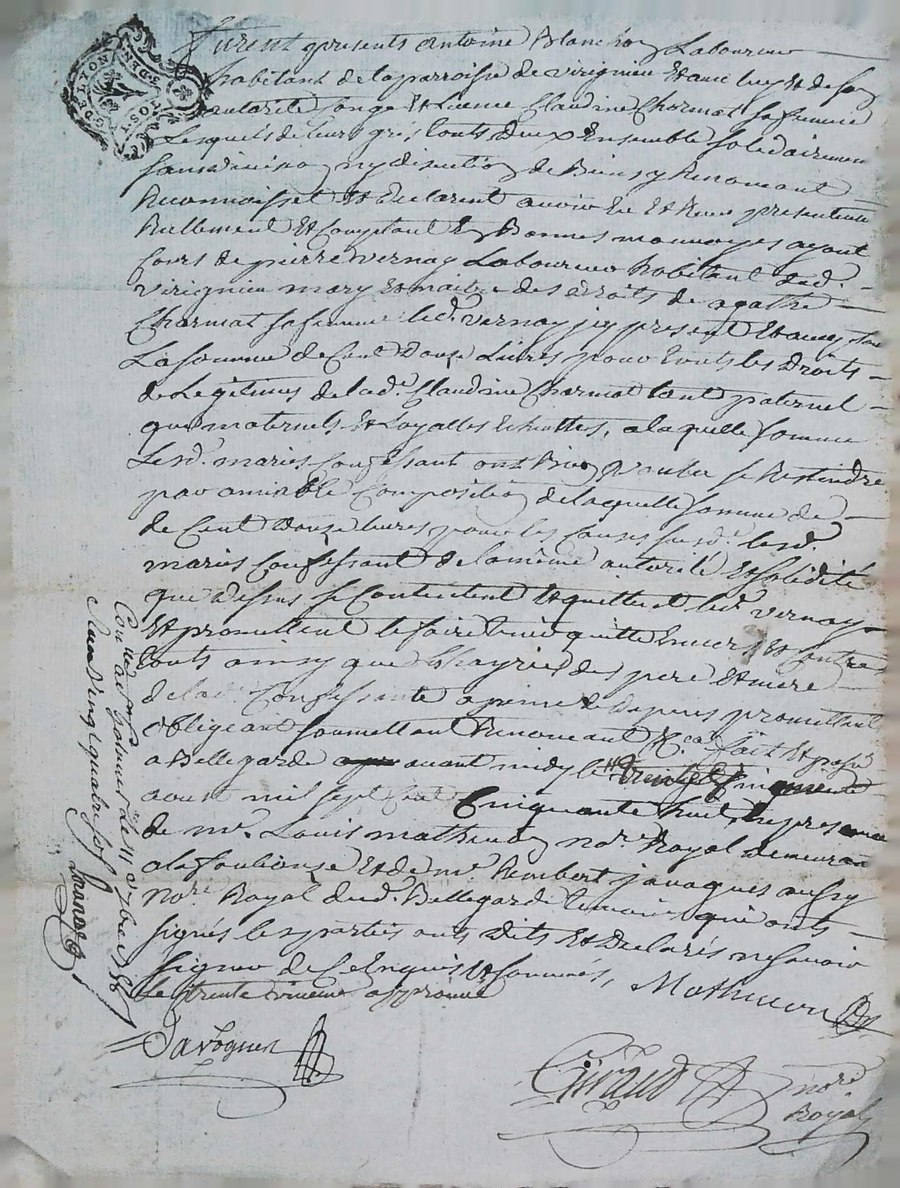 DE LYON
furent presents antoine Blanchon Laboureur
habitant de la parroisse de virignieu Et avec luy Et de son
autorité Et Licence Claudine Charmat sa femme
Lesquels de leurs gres touts deux Ensemble solidairement
sans division ny discution de Biens y Renonceant
Reconnoissent Et declarent avoir Eu Et Receu presentement
Reellement Et Comptant En Bonnes monnoyes ayant
Cours de pierre vernay Laboureur habitant dud.
virignieu mary Et maitre des droits de agathe
Charmat sa femme led. vernay icy present Et acceptant
La somme de Cent douze Livres pour touts les droits
de Legitimes de lad.e Claudine Charmat tant paternel
que maternels Et Loyalles Echuttes, a laquelle somme
Lesd. maries Confessant ont Bien voulu se Restindre
par amiable Composition de laquelle somme de
de Cent douze livres pour les causes susd. lesd.
maries Confessant de la même autorité Et solidité
que dessus se Contentent Et quittent led. vernay
Et promettent le faire tenir quitte Envers Et Contre
touts ainsy que L'hayrie des pere Et mere
de lad. Confessante a peine de depens promettant
obligeant soumettant Renonceant &.ca fait Et passé
a Bellegarde avant midy le
aoust mil sept Cent Cinquante huit, En presence
de m.e Louis mathevon no.re Royal demeurant
a la foulouse Et de m.e Rembert javogues aussy
No.re Royal dud. Bellegarde temoins qui ont
signés les parties ont dits Et declarés ne savoir
signer de ce Enquis Et sommés,
Le trente unieme approuvé
Mathevon
Javogues
Giraud no.re
Royal
Con.llé a le 11 7bre 1758
Reçu vingt quatre sols